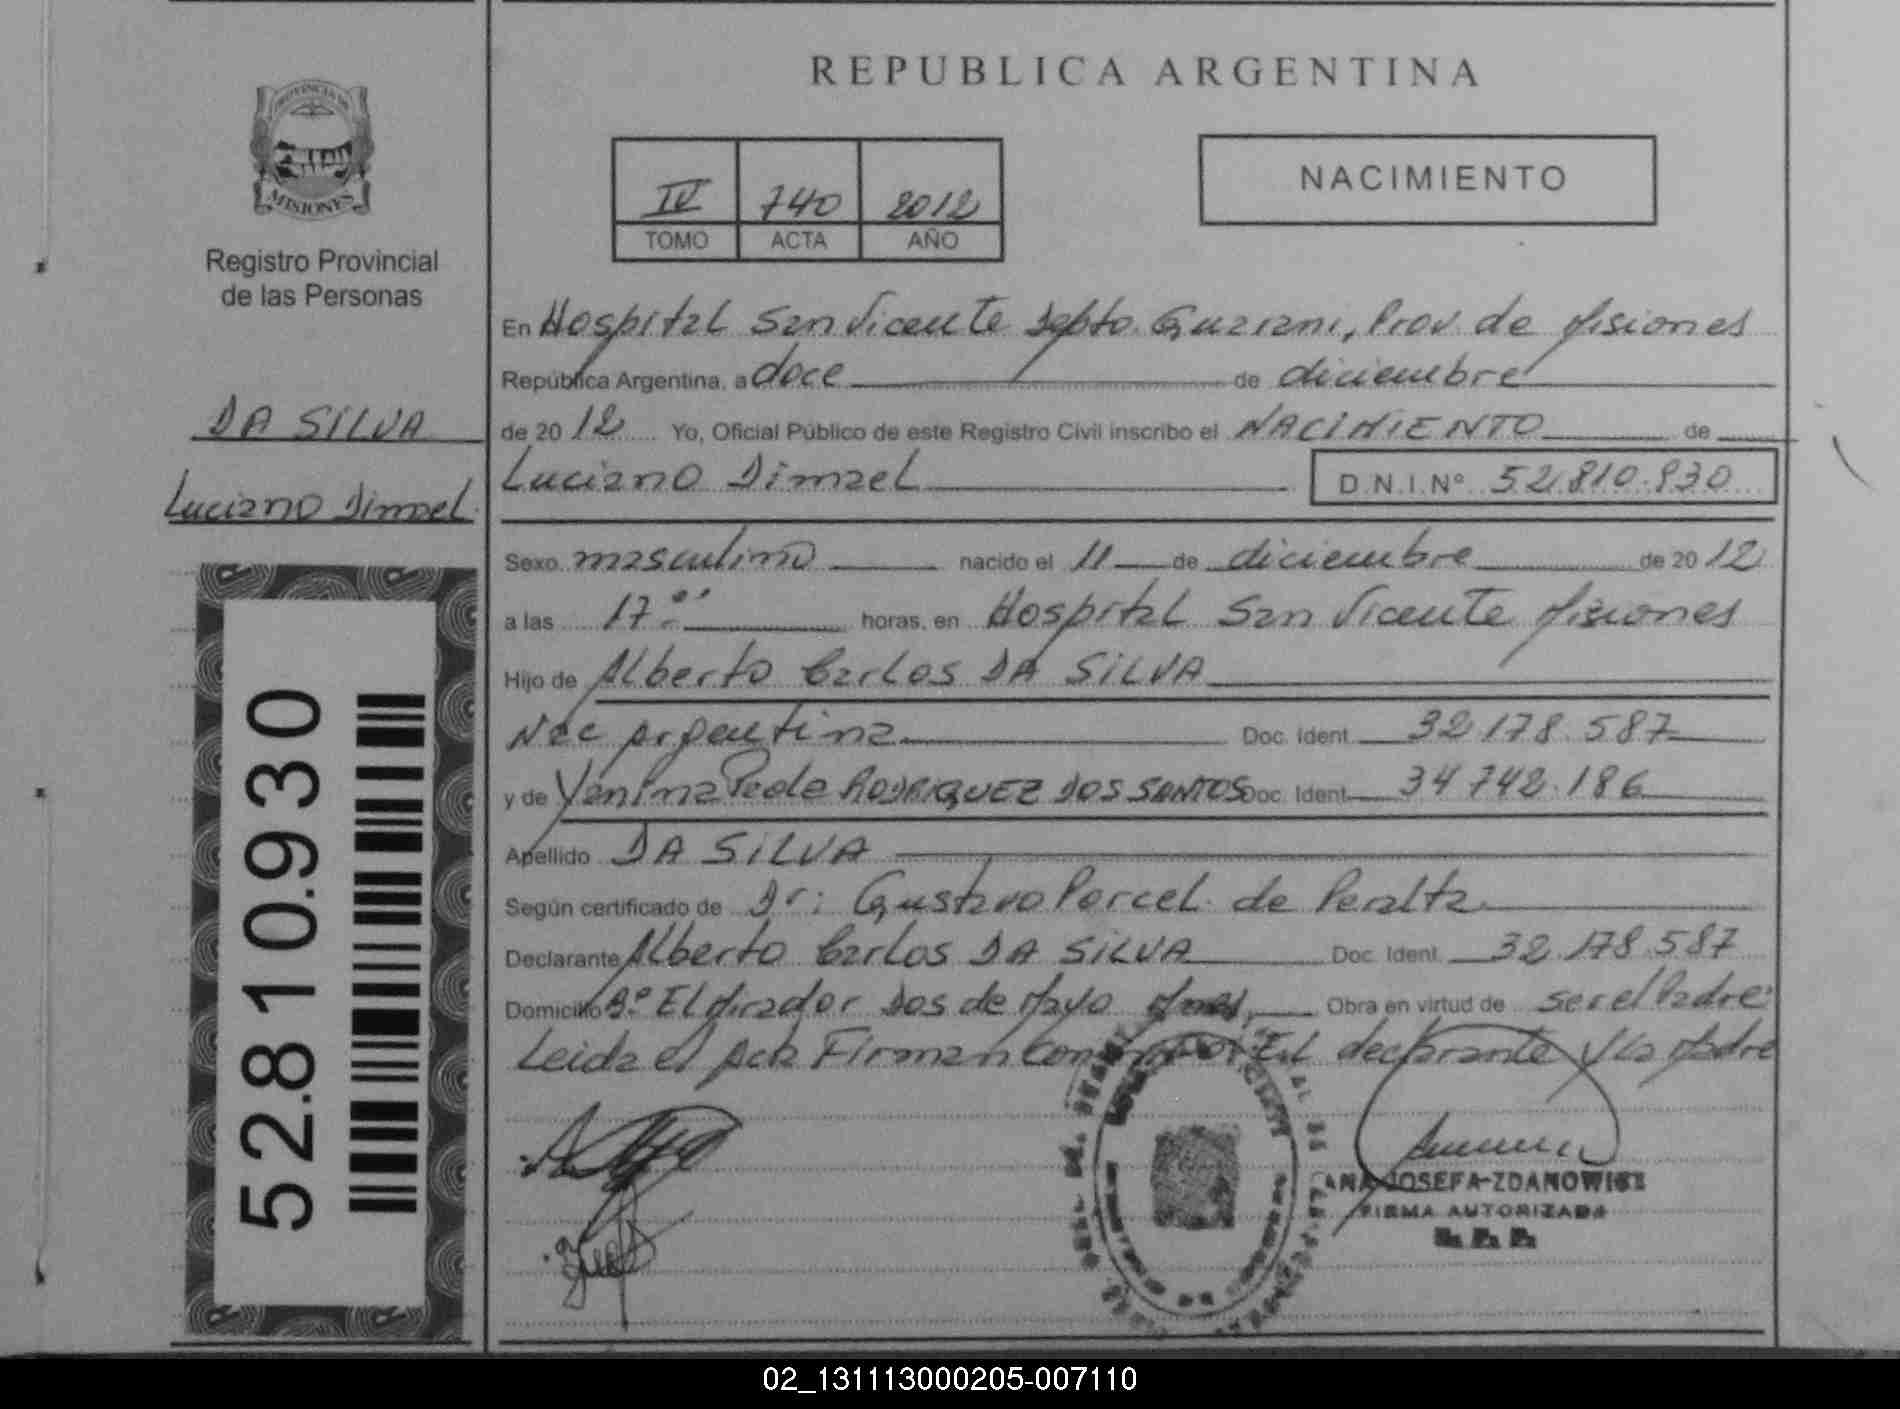 REPUBLICA ARGENTINA
PROVINCIA DE
MISIONES
Registro Provincial
de las Personas
DA SILVA
Luciano Dimael
52.810.930
IV 740 2012
TOMO ACTA AÑO
NACIMIENTO
En Hospital San Vicente Depto. Guarani, Prov. de Misiones
República Argentina, a doce de diciembre
de 2012 Yo, Oficial Público de este Registro Civil inscribo el NACIMIENTO de
Luciano Dimael D.N.I.Nº 52.810.930
Sexo masculino nacido el 11 de diciembre de 2012
a las 17 horas, en Hospital San Vicente Misiones
Hijo de Alberto Carlos DA SILVA
Nac Argentina Doc. Ident. 32.178.587
y de Yanina RODRIGUEZ DOS SANTOS Doc. Ident. 34.742.186
Apellido DA SILVA
Según certificado de Dr: Gustavo Porcel de Peralta
Declarante Alberto Carlos DA SILVA Doc. Ident. 32.178.587
Domicilio Bº El Mirador Dos de Mayo Mnes, Obra en virtud de ser el Padre
Leida el acta Firman El declarante y la Madre
ANA JOSEFA ZDANOWICZ
FIRMA AUTORIZADA
R. P. P.
02_131113000205-007110